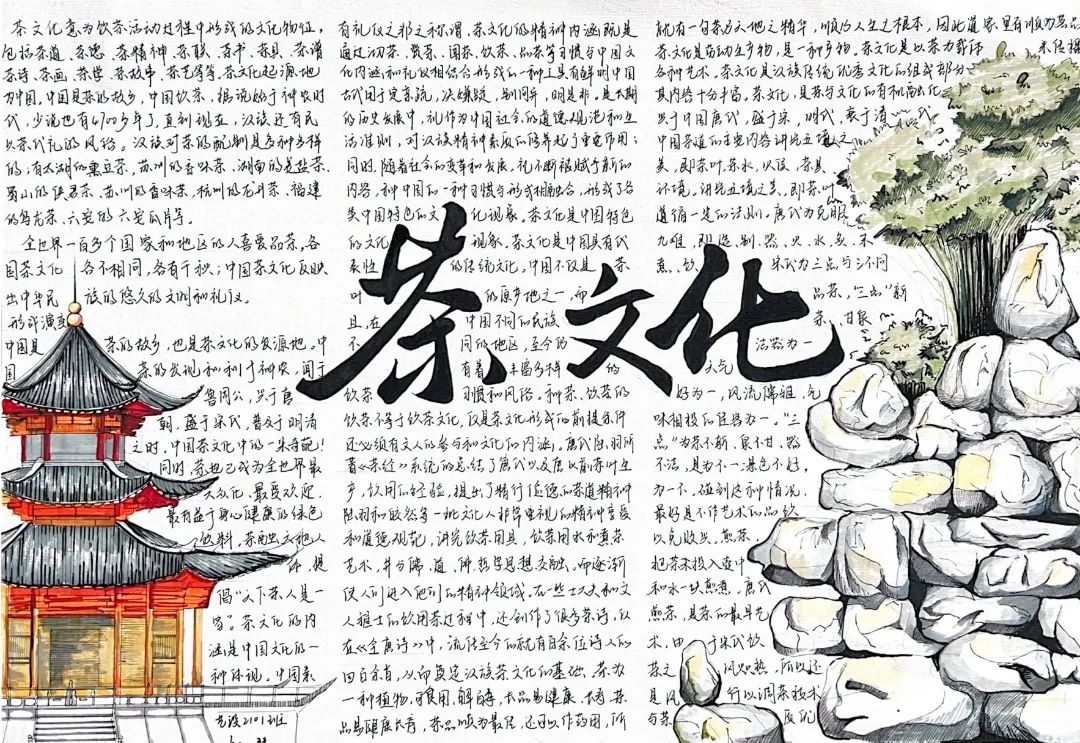 茶文化意为饮茶活动过程中形成的文化特征,
包括茶道、茶德、茶精神、茶联、茶书、茶具、茶谱
茶诗、茶画、茶学、茶故事、茶艺等等,茶文化起源地
为中国。中国是茶的故乡,中国饮茶,据说始于神农时
代,少说也有4700多年了,直到现在,汉族还有民
以茶代礼的风俗。汉族对茶的配制是多种多样
的:有太湖的熏豆茶,苏州的香味茶,湖南的姜盐茶,
蜀山的侠君茶,苏州的香味茶,杭州的龙井茶,福建
的乌龙茶、六安的六安瓜片等。
全世界一百多个国家和地区的人喜爱品茶,各
国茶文化各不相同,各有千秋;中国茶文化反映
出中华民族的悠久的文明和礼仪。
形成演变
中国是茶的故乡,也是茶文化的发源地。中
国茶的发现和利用 神农,闻于
鲁周公,兴于唐
朝,盛于宋代,普及于明清
之时。中国茶文化中的一朵奇葩!
同时,茶也已成为全世界最
大众化、最受欢迎、
最有益于身心健康的绿色
饮料,茶融天地人
体,提
倡"天下茶人是一
家"。茶文化的内
涵是中国文化的一
种体现,中国素
2101班
有礼仪之邦之称谓,茶文化的精神内涵既是
通过沏茶、赏茶、闻茶、饮茶、品茶等习惯与中国文
化内涵和礼仪相结合形成的一种上具有鲜明中国
古代用于定亲疏,决嫌疑,别同异,明是非。是长期
的历史发展中,礼作为中国社会的道德规范和生
活准则,对汉族精神素质的修养起了重要作用;
同时,随着社会的变革和发展,礼不断被赋予新的
内容,和中国的一种习惯与形式相融合,形成了各
类中国特色的文化现象。茶文化是中国特色
的文化现象,茶文化是中国具有代
表性的传统文化。中国不仅是茶
叶的原产地之一,而
且,在中国不同的民族
不同的地区,至今仍
有着丰富多样的
饮茶习惯和风俗。种茶、饮茶的
饮茶不等于饮茶文化,仅是茶文化形成的前提条件
还必须有文人的参与和文化的内涵。唐代陆羽所
著《茶经》系统的总结了唐代以及唐以前茶叶生
产,饮用的经验,提出了精行俭德的茶道精神
陆羽和皎然等一批文化人非常重视的精神享受
和道德规范,讲究饮茶用具,饮茶用水和煮茶
艺术,并与儒、道、佛哲学思想交融。而逐渐
使人们进入他们的精神领域。在一些士大夫和文
人雅士的饮用茶过程中,还创作了很多茶诗,仅
在《全唐诗》中,流传至今的就有百余位诗人的
四百余首,从而奠定汉族茶文化的基础。茶为
一种植物,可食用,解百毒,长品易健康、长寿,茶
品易健康长寿,茶品顺为最佳,还可以作药用,所
就有一句茶乃天地之精华,顺乃人生之根本,因此道家里有顺为茶品
茶文化是劳动生产物,是一种产物,茶文化是以茶为载体
来传播
各种艺术。茶文化是汉族传统优秀文化的组成部分
其内容十分丰富,茶文化,是茶与文化的有机融合
兴于中国唐代,盛于宋、明代,衰于清代
中国茶道的主要内容讲究五境之
美,即茶叶,茶水,火候、茶具、
环境。讲究五境之美,即茶叶
遵循一定的法则。唐代为克服
九难,即造、别、器、火、水、炙、末
煮、饮 宋代为三点与三不同
品茶,"三点"新
茶、甘泉
洁器为一
天气
好为一,风流儒雅、气
味相投的佳客为一。"三
点"为茶不新、泉不甘、器
不洁,具为不一,景色不好,
为一不。碰到这种情况,
最好是不作艺术的品饮
以免败兴,煎茶,
把茶末投入壶中
和水一块煎煮。唐代
煎茶,是茶的最早艺
术,由于宋代饮
茶之风炽热,所以还
是风行以调茶技术
与茶
茶文化